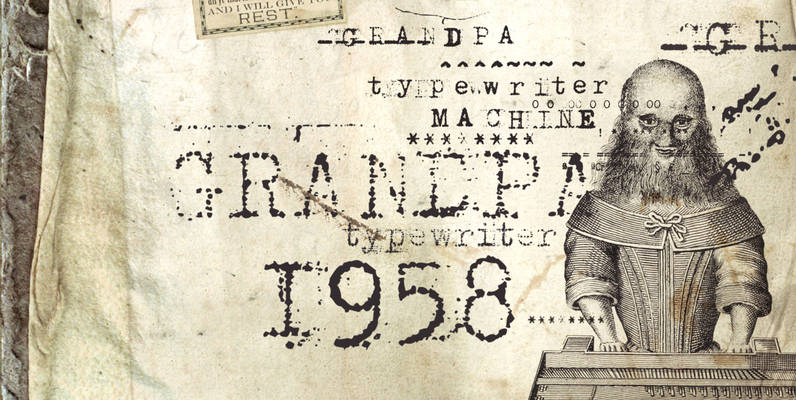 AND I WILL GIVE YOU
REST.
GRANDPA
GR
typewriter
MACHINE
********
GRANDPA
typewriter
1958
********